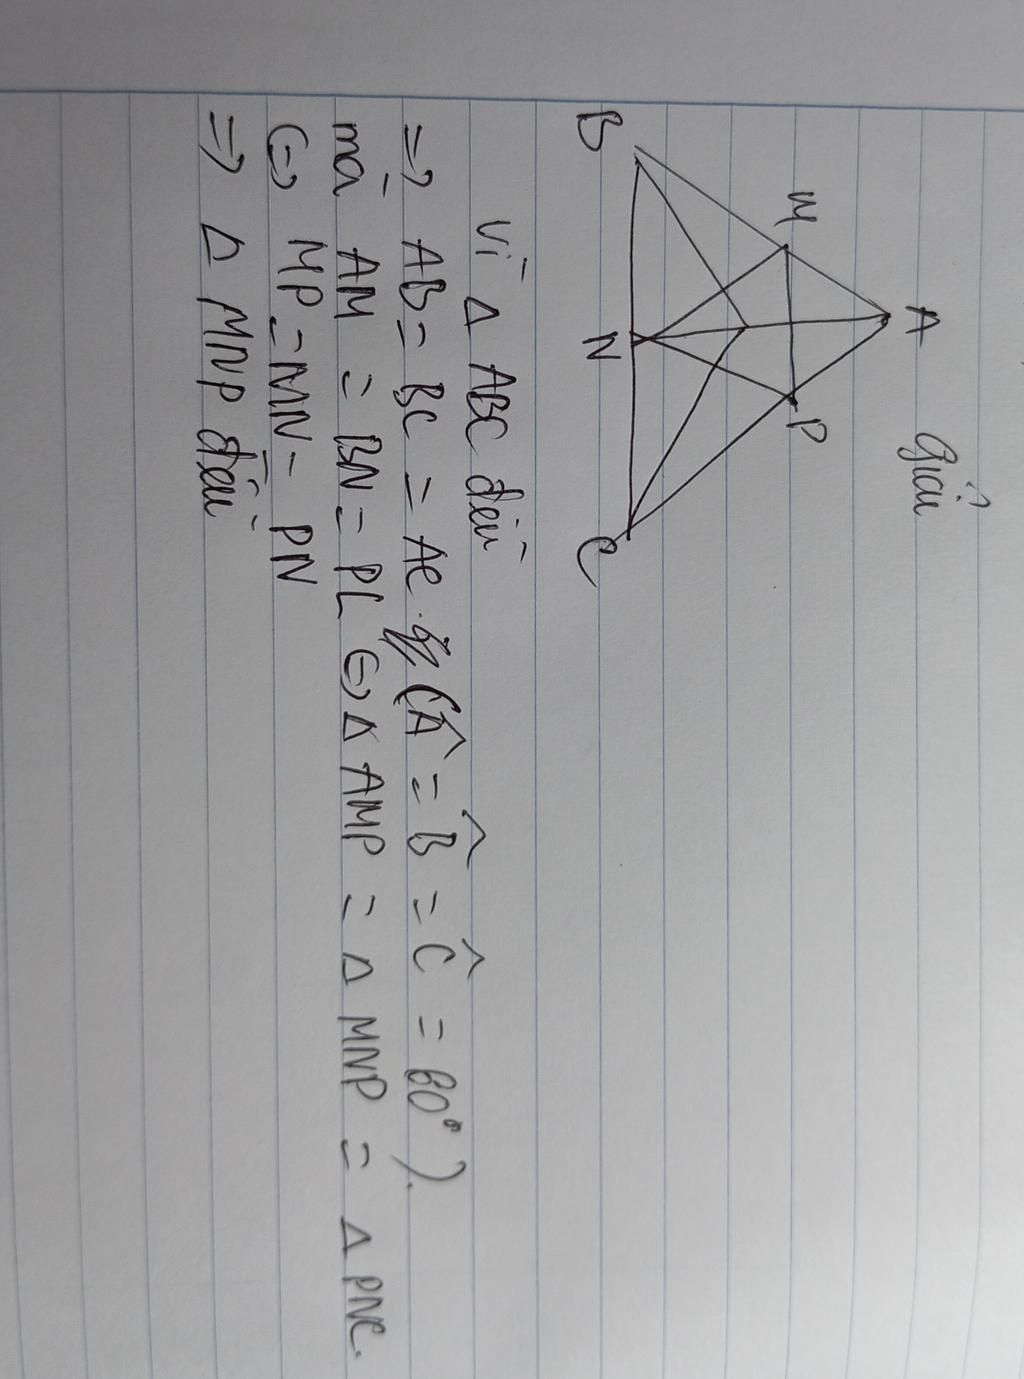 Giải
A
M
P
B
N
C
Vì Δ ABC đều
=> AB = BC = AC (Â = B̂ = Ĉ = 60°).
mà AM = BN = PC (=) Δ AMP = Δ MNP = Δ PNC.
(=) MP = MN = PN
=> Δ MNP đều